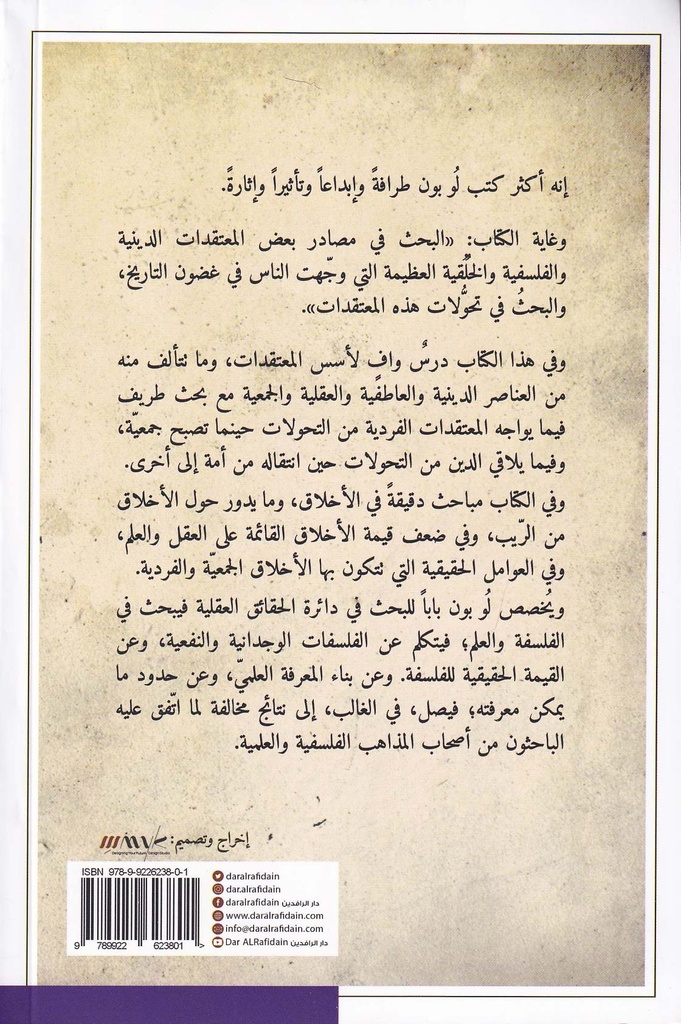 إنه أكثر كتب لُو بون طرافةً وإبداعاً وتأثيراً وإثارةً.
وغاية الكتاب: «البحث في مصادر بعض المعتقدات الدينية
والفلسفية والخُلُقية العظيمة التي وجّهت الناس في غضون التاريخ،
والبحثُ في تحوُّلات هذه المعتقدات».
وفي هذا الكتاب درسٌ وافٍ لأسس المعتقدات، وما تتألف منه
من العناصر الدينية والعاطفية والعقلية والجمعية مع بحث طريف
فيما يواجه المعتقدات الفردية من التحولات حينما تصبح جمعيّة،
وفيما يلاقي الدين من التحولات حين انتقاله من أمة إلى أخرى.
وفي الكتاب مباحث دقيقةً في الأخلاق، وما يدور حول الأخلاق
من الرّيب، وفي ضعف قيمة الأخلاق القائمة على العقل والعلم،
وفي العوامل الحقيقية التي تتكون بها الأخلاق الجمعيّة والفردية.
ويُخصص لُو بون باباً للبحث في دائرة الحقائق العقلية فيبحث في
الفلسفة والعلم؛ فيتكلم عن الفلسفات الوجدانية والنفعية، وعن
القيمة الحقيقية للفلسفة. وعن بناء المعرفة العلميّ، وعن حدود ما
يمكن معرفته؛ فيصل، في الغالب، إلى نتائج مخالفة لما اتّفق عليه
الباحثون من أصحاب المذاهب الفلسفية والعلمية.
إخراج وتصميم:
ISBN 978-9-9226238-0-1
9 789922 623801 >
daralrafidain
dar.alrafidain
daralrafidain دار الرافدين
www.daralrafidain.com
info@daralrafidain.com
Dar ALRafidain دار الرافدين